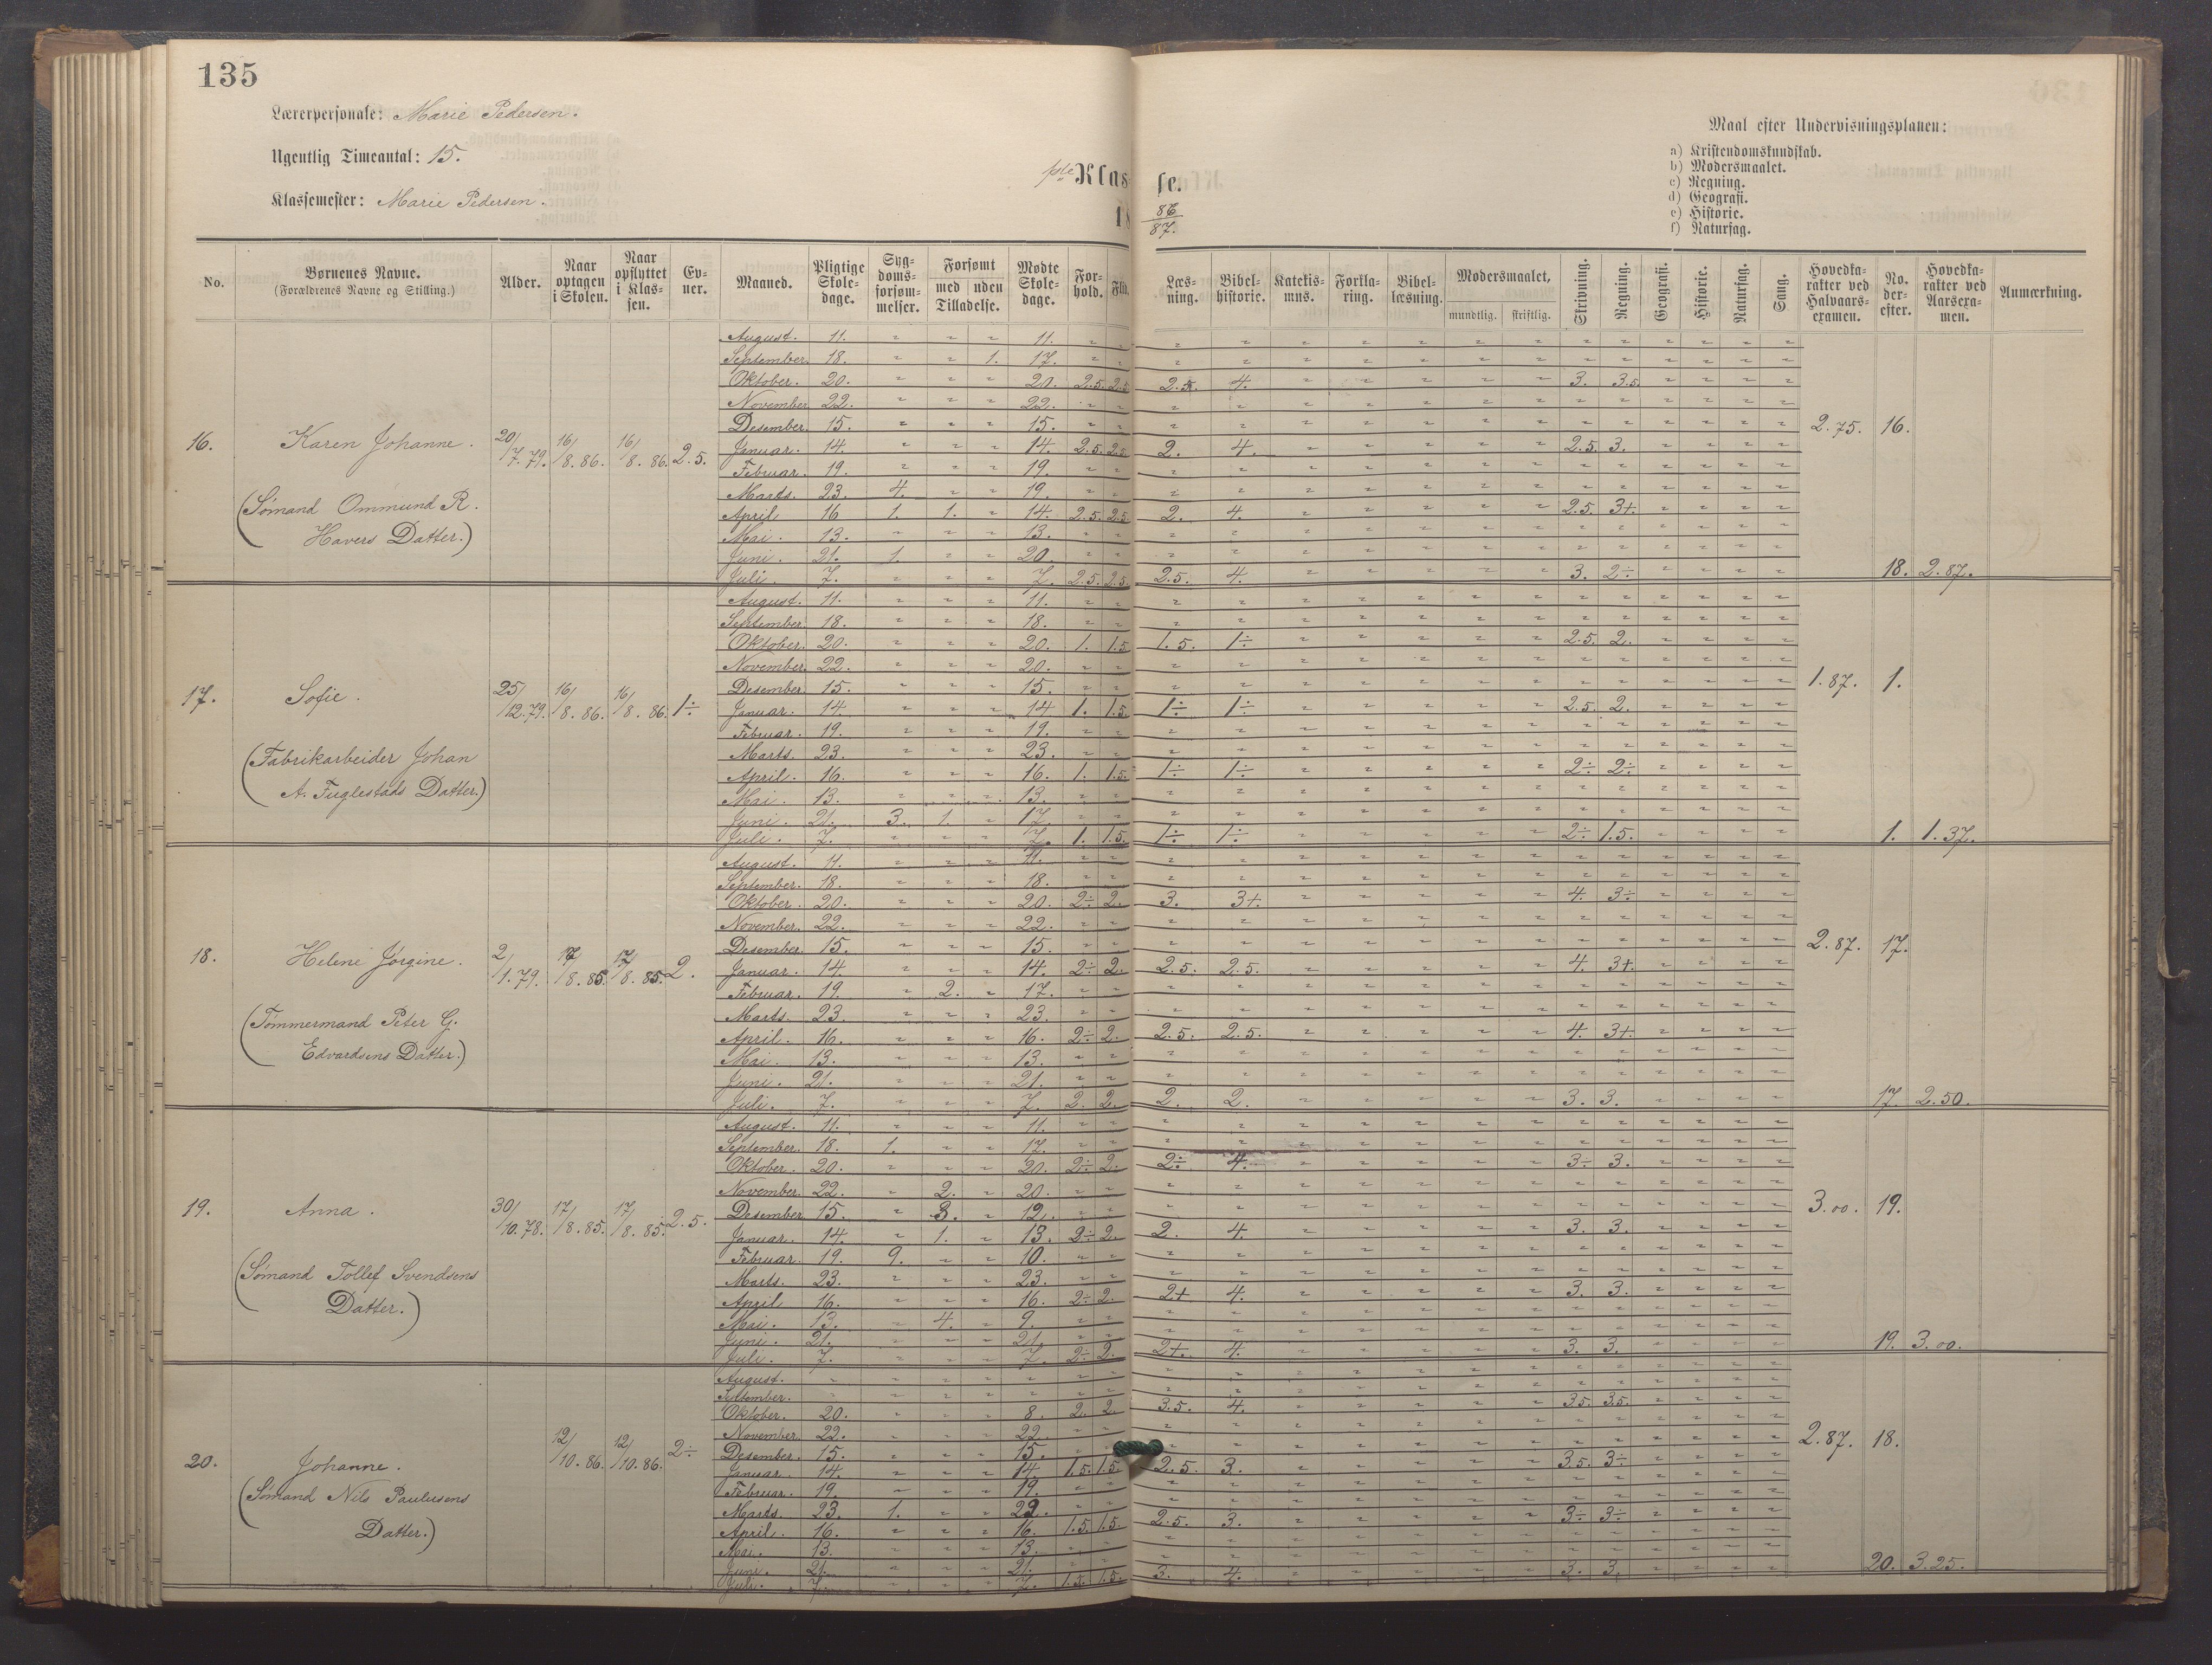 135
Lærerpersonale: Marie Pedersen.
Ugentlig Timeantal: 15.
Klassemester: Marie Pedersen.
1ste Klasse.
18 86/87.
Maal efter Undervisningsplanen:
a) Kristendomskundskab.
b) Modersmaalet.
c) Regning.
d) Geografi.
e) Historie.
f) Naturfag.
No. | Børnenes Navne. (Forældrenes Navne og Stilling.) | Alder. | Naar optagen i Skolen. | Naar opflyttet i Klassen. | Evner. | Maaned. | Pligtige Skoledage. | Sygdomsforsømmelser. | Forsømt med / uden Tilladelse. | Mødte Skoledage. | Forhold. | Flid. | Læsning. | Bibelhistorie. | Katekismus. | Forklaring. | Bibellæsning. | Modersmaalet, mundtlig. / skriftlig. | Skrivning. | Regning. | Geografi. | Historie. | Naturfag. | Sang. | Hovedkarakter ved Halvaarsexamen. | No. derefter. | Hovedkarakter ved Aarsexamen. | Anmærkning.
16. Karen Johanne. 20/7.79. 16/8.86. 16/8.86. 2.5. 2.75. 16.
(Sømand Ommund R.
Havers Datter.)
August. 11. " " " 11.
September. 18. " " 1. 17.
Oktober. 20. " " " 20. 2.5. 2.5. 2.5. 4. 3. 3.5.
November 22. " " " 22.
Desember. 15. " " " 15.
Januar. 14. " " " 14. 2.5. 2.5. 2. 4. 2.5. 3.
Februar. 19. " " " 19.
Marts. 23. 4. " " 19.
April 16 1. 1. " 14. 2.5. 2.5. 2. 4. 2.5. 3+.
Mai. 13. " " " 13.
Juni. 21. 1. " " 20.
Juli. 7. " " " 7. 2.5. 2.5. 2.5. 4. 3. 2÷ 18. 2.87.
17. Sofie. 25/12.79. 16/8.86. 16/8.86. 1÷ 1.87. 1.
(Fabrikarbeider Johan
A. Fuglestads Datter.)
August. 11. " " " 11.
September. 18. " " " 18.
Oktober. 20. " " " 20. 1. 1.5 1.5. 1÷ 2.5. 2.
November. 22. " " " 20.
Desember 15. " " " 15.
Januar. 14. " " " 14 1. 1.5. 1÷ 1÷ 2.5. 2.
Februar. 19. " " " 19.
Marts. 23. " " " 23.
April. 16. " " " 16. 1. 1.5. 1÷ 1÷ 2÷ 2÷
Mai. 13. " " " 13.
Juni. 21. 3. 1. " 17.
Juli. 7. " " " 7. 1. 1.5. 1÷ 1÷ 2÷ 1.5. 1. 1.37.
18. Helene Jørgine. 2/1.79. 17/8.85. 17/8.85. 2. 2.87. 17.
(Tømmermand Peter G.
Edvardsens Datter.)
August. 11. " " " 11.
September. 18. " " " 18.
Oktober. 20. " " " 20. 2÷ 2. 3. 3+. 4. 3÷
November. 22. " " " 22.
Desember. 15. " " " 15.
Januar. 14. " " " 14. 2÷ 2. 2.5. 2.5. 4. 3+.
Februar. 19. " 2. " 17.
Marts. 23. " " " 23.
April. 16. " " " 16. 2÷ 2. 2.5. 2.5. 4. 3+.
Mai. 13. " " " 13.
Juni. 21. " " " 21.
Juli. 7. " " " 7. 2. 2. 2. 2. 3. 3. 17. 2.50.
19. Anna. 30/10.78. 17/8.85. 17/8.85. 2.5. 3.00. 19.
(Sømand Tollef Svendsens
Datter.)
August. 11. " " " 11.
September. 18. 1. " " 17.
Oktober. 20. " " " 20. 2÷ 2. 2÷ 4. 3÷ 3.
November. 22. " 2. " 20.
Desember 15. " 3. " 12.
Januar. 14. " 1. " 13. 2÷ 2. 2. 4. 3. 3.
Februar. 19. 9. " " 10.
Marts. 23. " " " 23.
April 16. " " " 16. 2÷ 2. 2+ 4. 3. 3.
Mai. 13. " 4. " 9.
Juni. 21. " " " 21.
Juli. 7. " " " 7. 2÷ 2. 2+. 4. 3. 3. 19. 3.00.
20. Johanne. 12/10.86. 12/10.86. 2÷ 2.87. 18.
(Sømand Nils Paulusens
Datter.)
August.
September.
Oktober. 20. " " " 8. 2. 2. 3.5. 4. 3.5. 3.5.
November. 22. " " " 22.
Desember. 15. " " " 15.
Januar. 14. " " " 14. 1.5. 1.5. 2.5. 3. 3.5. 3÷
Februar. 19. " " " 19.
Marts. 23. 1. " " 22.
April. 16. " " " 16. 1.5. 1.5. 2.5. 3. 3÷ 3÷
Mai. 13. " " " 13.
Juni. 21. " " " 21.
Juli. 7. " " " 7. 1.5. 1.5. 3. 4. 3. 3. 20. 3.25.